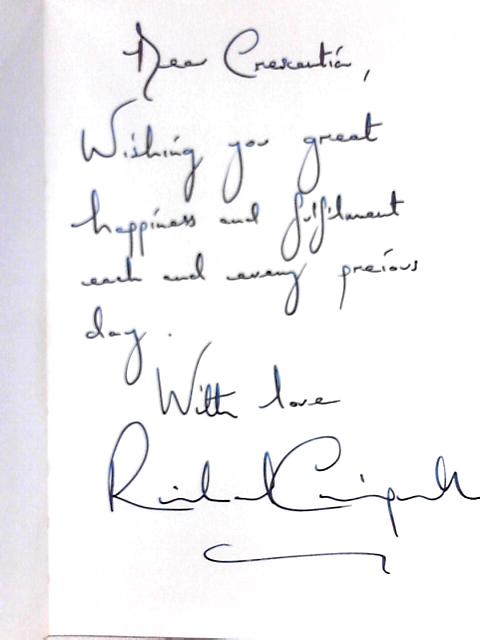 Dear Crescentia,
Wishing you great
happiness and fulfilment
each and every precious
day.
With love
Richard